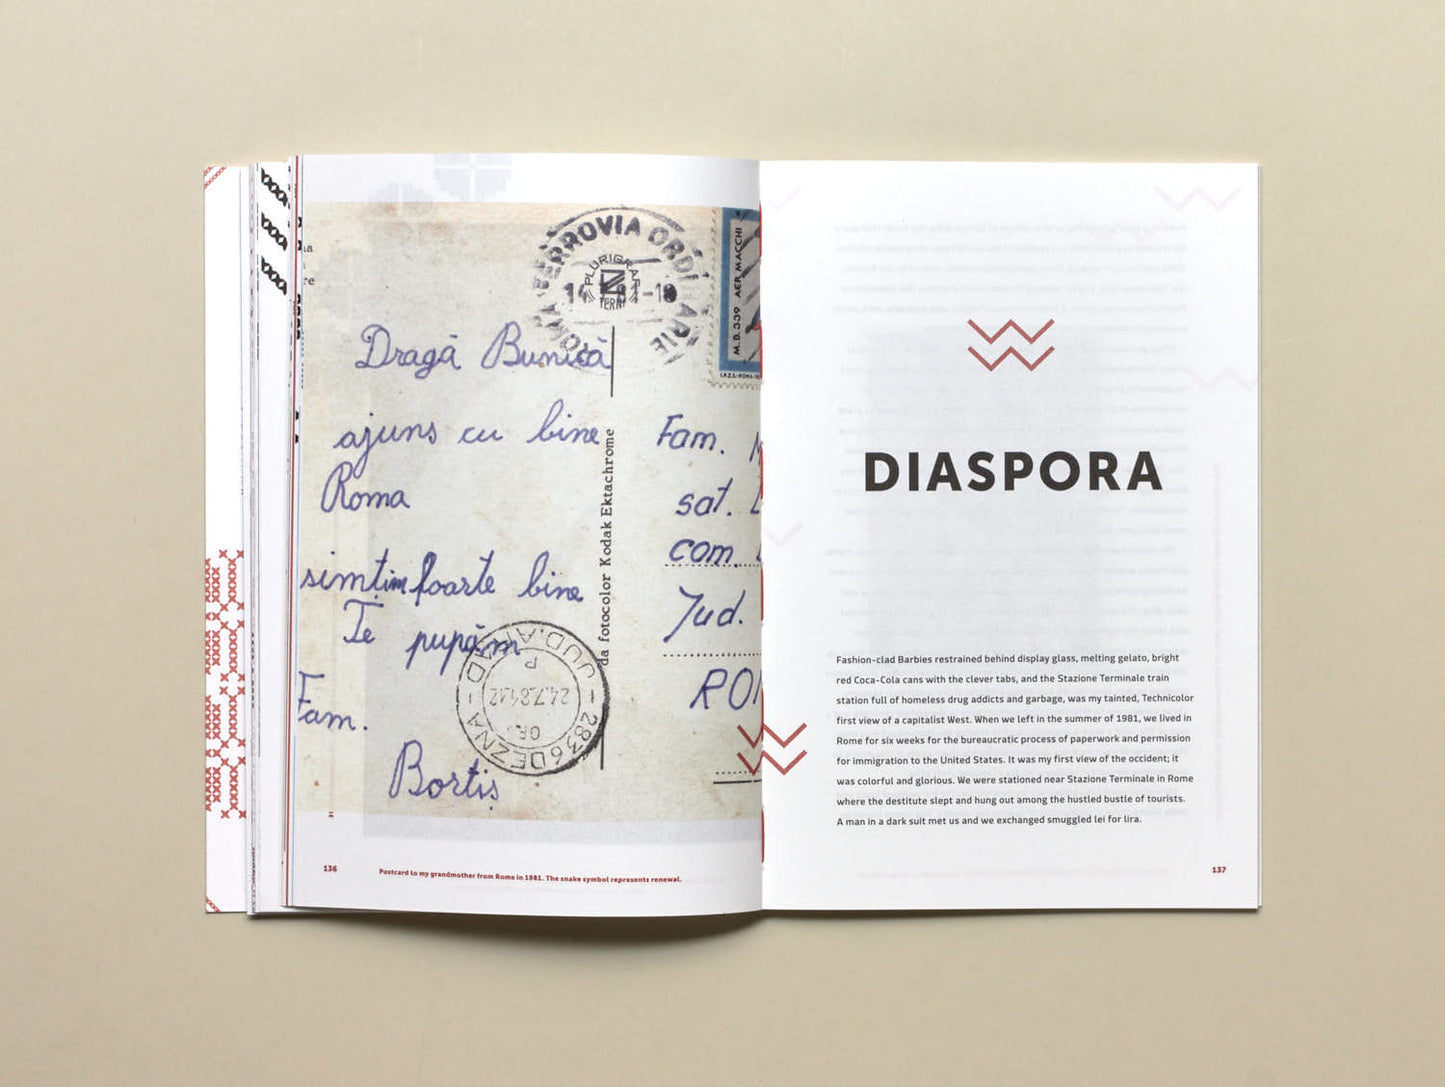 ROMA FERROVIA ORDINARIE
PLURIGRAF
TERNI
M.B.339 AER MACCHI
I.P.Z.S.-ROMA
Dragă Bunică
ajuns cu bine
Roma
simțim foarte bine
Te pupăm
Fam.
Bortiș
da fotocolor Kodak Ektachrome
Fam.
sat.
com.
Jud.
2836 DEZNA - JUD. ARAD
24.7.81.12
136
Postcard to my grandmother from Rome in 1981. The snake symbol represents renewal.
DIASPORA
Fashion-clad Barbies restrained behind display glass, melting gelato, bright
red Coca-Cola cans with the clever tabs, and the Stazione Terminale train
station full of homeless drug addicts and garbage, was my tainted, Technicolor
first view of a capitalist West. When we left in the summer of 1981, we lived in
Rome for six weeks for the bureaucratic process of paperwork and permission
for immigration to the United States. It was my first view of the occident; it
was colorful and glorious. We were stationed near Stazione Terminale in Rome
where the destitute slept and hung out among the hustled bustle of tourists.
A man in a dark suit met us and we exchanged smuggled lei for lira.
137